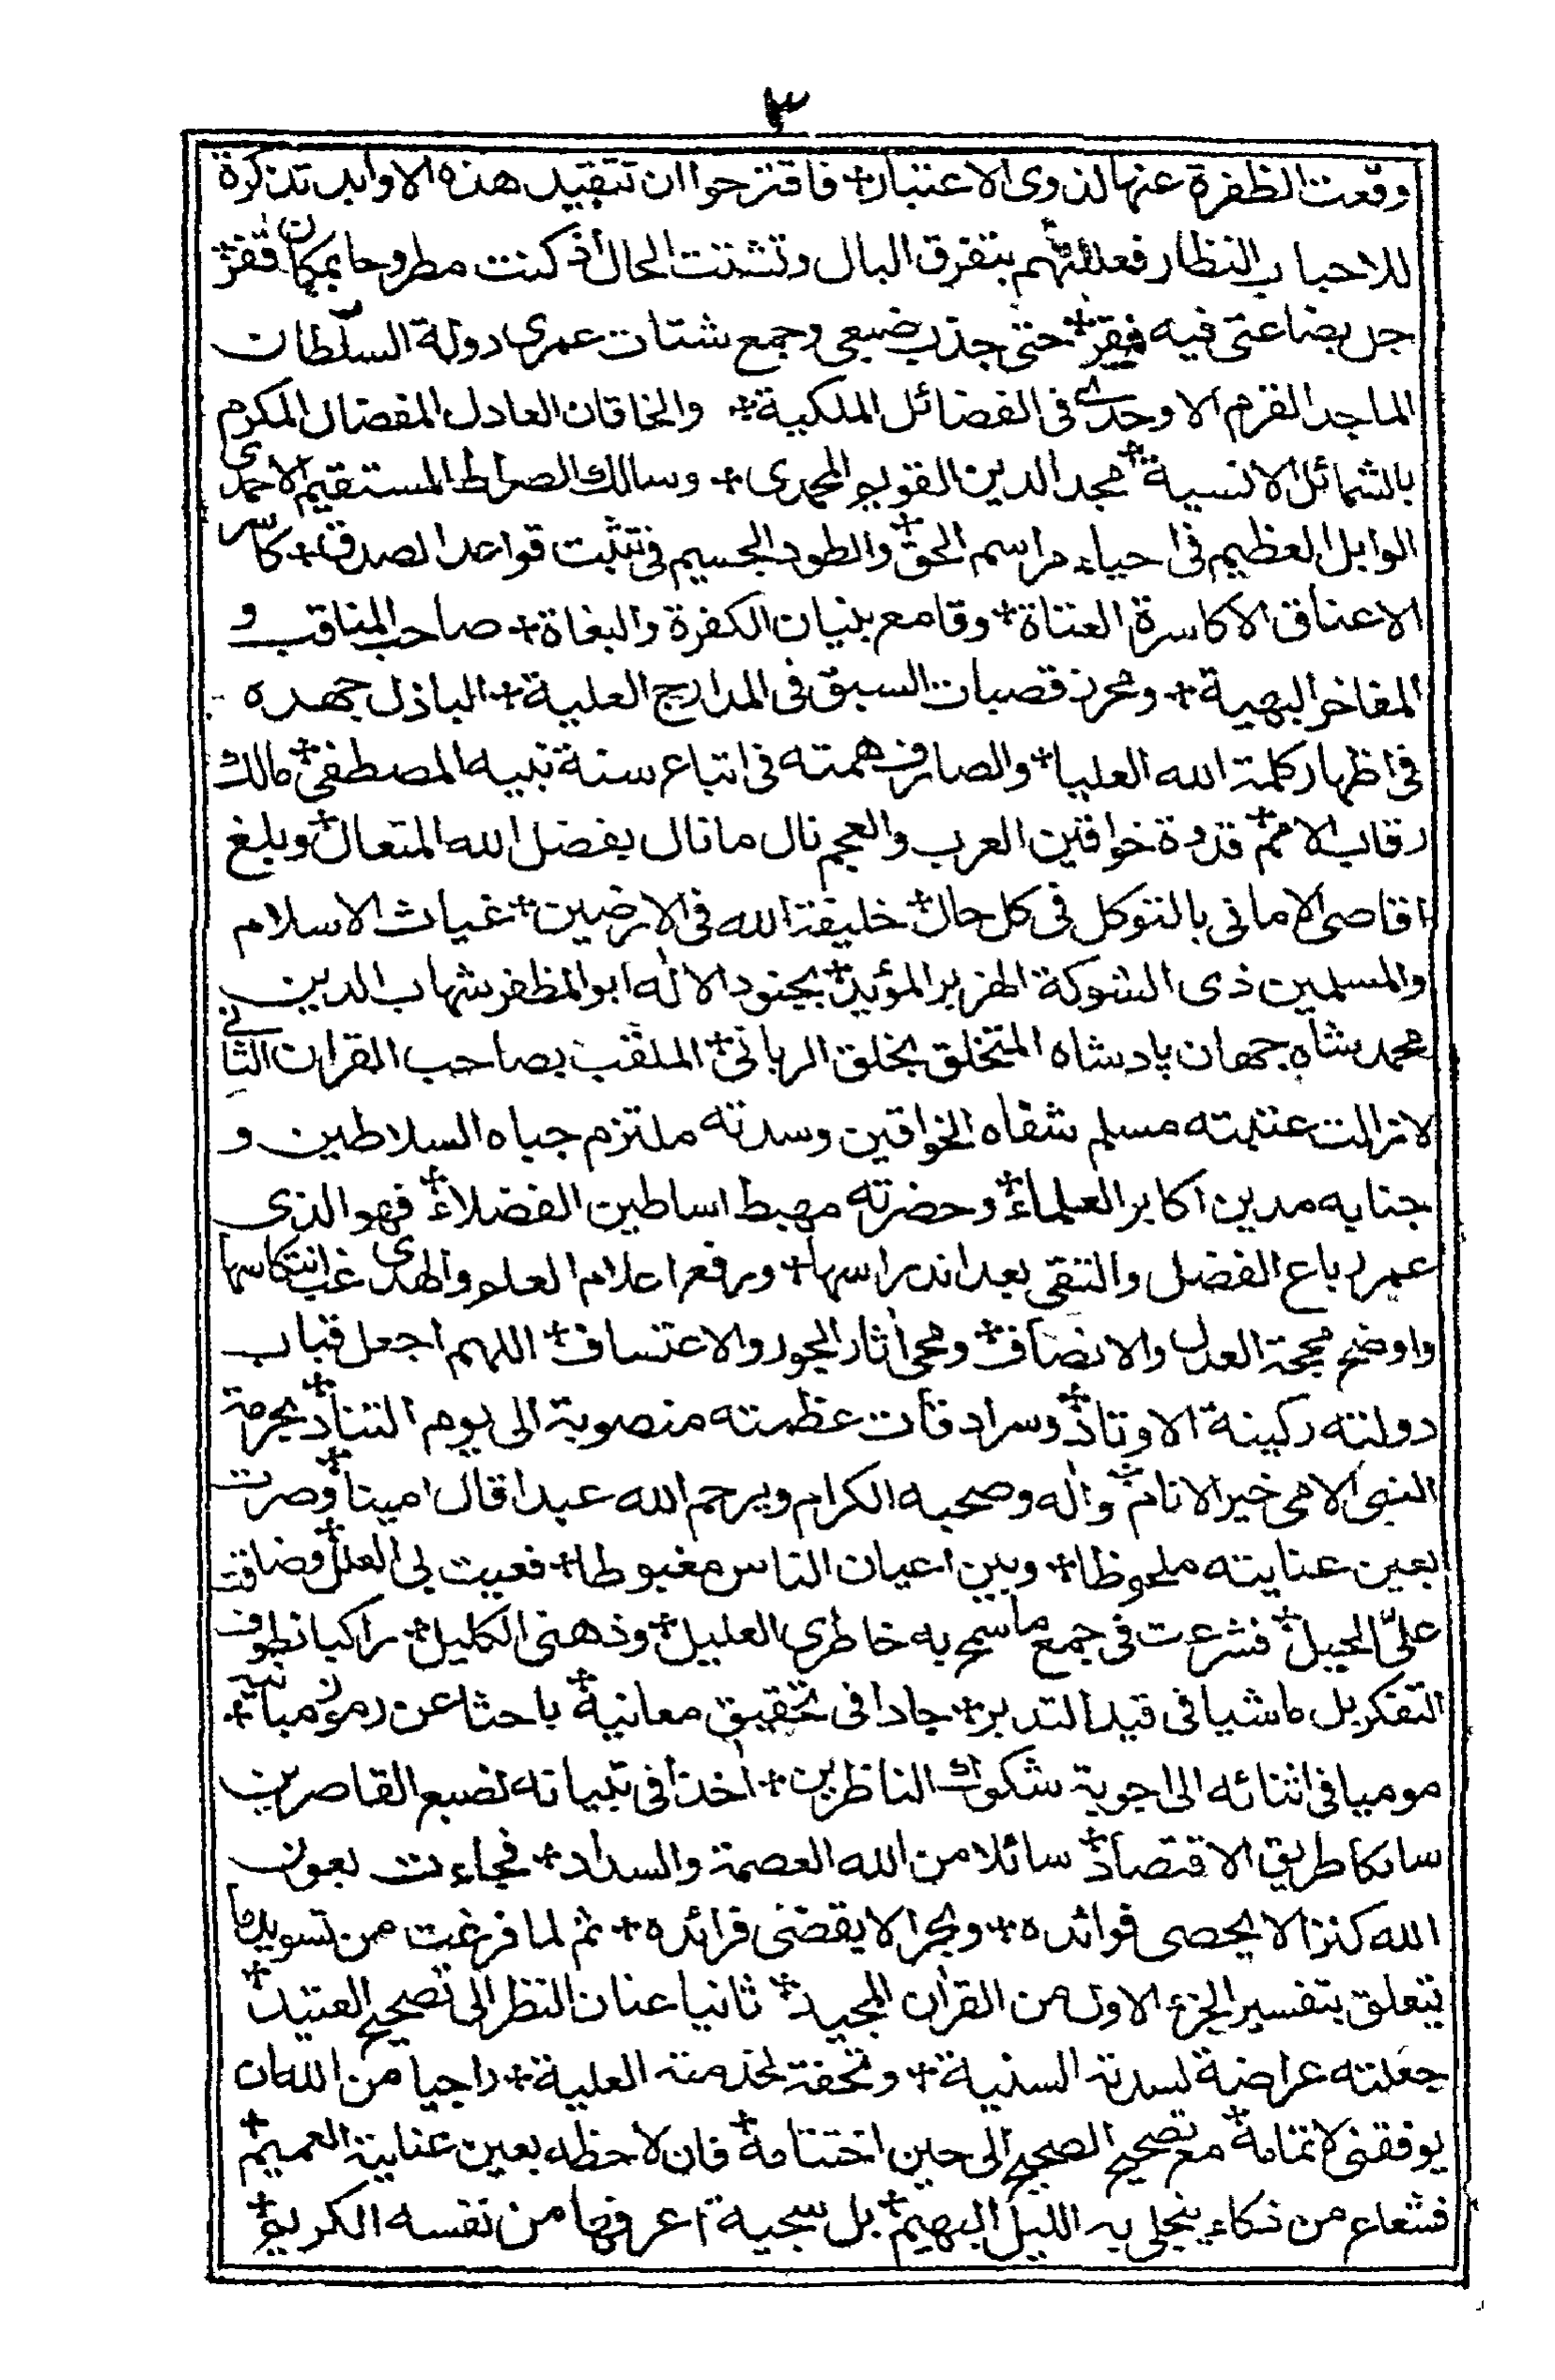 ٣
وقعت الظفرة عنها لذوى الاعتبار + فاقترحوا ان تتقييد هذه الاوابد تذكرة
للاحباب النظار فعللتهم بتفرق البال وتشتت الحال اذ كنت مطروحا بمكان قفر +
جل بضاعتى فيه فقر + حتى جذب ضبعى وجمع شتات عمرى دولة السلطان
الماجد القرم الاوحدى فى الفضائل الملكية + والخاقان العادل المفضال المكرم
بالشمائل الانسية + مجد الدين القويم المحمدى + وسالك الصراط المستقيم الاحمدى
الوابل العظيم فى احياء مراسم الحق + والطود الجسيم فى تثبت قواعد الصدق + كاسر
الاعناق الاكاسرة العتاة + وقامع بنيان الكفرة والبغاة + صاحب المناقب و
المفاخر البهية + ومحرز قصبات السبق فى المدارج العلية + الباذل جهده
فى اظهار كلمة الله العليا + والصارف همته فى اتباع سنة نبيه المصطفى + مالك
رقاب الامم + قدوة خواقين العرب والعجم نال ما نال بفضل الله المتعال + وبلغ
اقاصى الامانى بالتوكل فى كل حال + خليفة الله فى الارضين + غياث الاسلام
والمسلمين ذى الشوكة الهزبر المؤيد + بجنود الاله ابو المظفر شهاب الدين
محمد شاه جهان پادشاه المتخلق بخلق الربانى + الملقب بصاحب القران الثانى
لازالت عتبته مسلم شفاه الخواقين وسدته ملتزم جباه السلاطين و
جنابه مدين اكابر العلماء + وحضرته مهبط اساطين الفضلاء + فهو الذى
عمر رباع الفضل والتقى بعد اندراسها + ورفع اعلام العلم والهدى غب انتكاسها
واوضح محجة العدل والانصاف + ومحى اثار الجور والاعتساف + اللهم اجعل قباب
دولته ركينة الاوتاد + وسرادقات عظمته منصوبة الى يوم التناد + بحرمة
النبى الامى خير الانام + واله وصحبه الكرام ويرحم الله عبدا قال امينا + وصرت
بعين عنايته ملحوظا + وبين اعيان الناس مغبوطا + فعيت لى العلل + وضاقت
علىّ الحيل + فشرعت فى جمع ما سمح به خاطرى العليل + وذهنى الكليل + راكبا نطوف
التفكر بل ماشيا فى قيد التدبر + جادا فى تحقيق معانيه + باحثا عن رموز مبانيه +
موميا فى اثنائه الى اجوبة شكوك الناظرين + اخذا فى تبيانه لضبع القاصرين
سالكا طريق الاقتصاد + سائلا من الله العصمة والسداد + فجاءت بعون
الله كنزا لا يحصى فوائده + وبحرا لا يقضى فرائده + ثم لما فرغت من تسويد ما
يتعلق بتفسير الجزء الاول من القران المجيد + ثانيا عنان النظر الى تصحيح العتيد +
جعلته عراضة لسدته السنية + وتحفة لخدمته العلية + راجيا من الله ان
يوفقنى لاتمامه + مع تصحيح الصحيح الى حين اختتامه + فان لاحظه بعين عناية العميم +
فشعاع من ذكاء ينجلى به الليل البهيم + بل سجية اعرفها من نفسه الكريم +